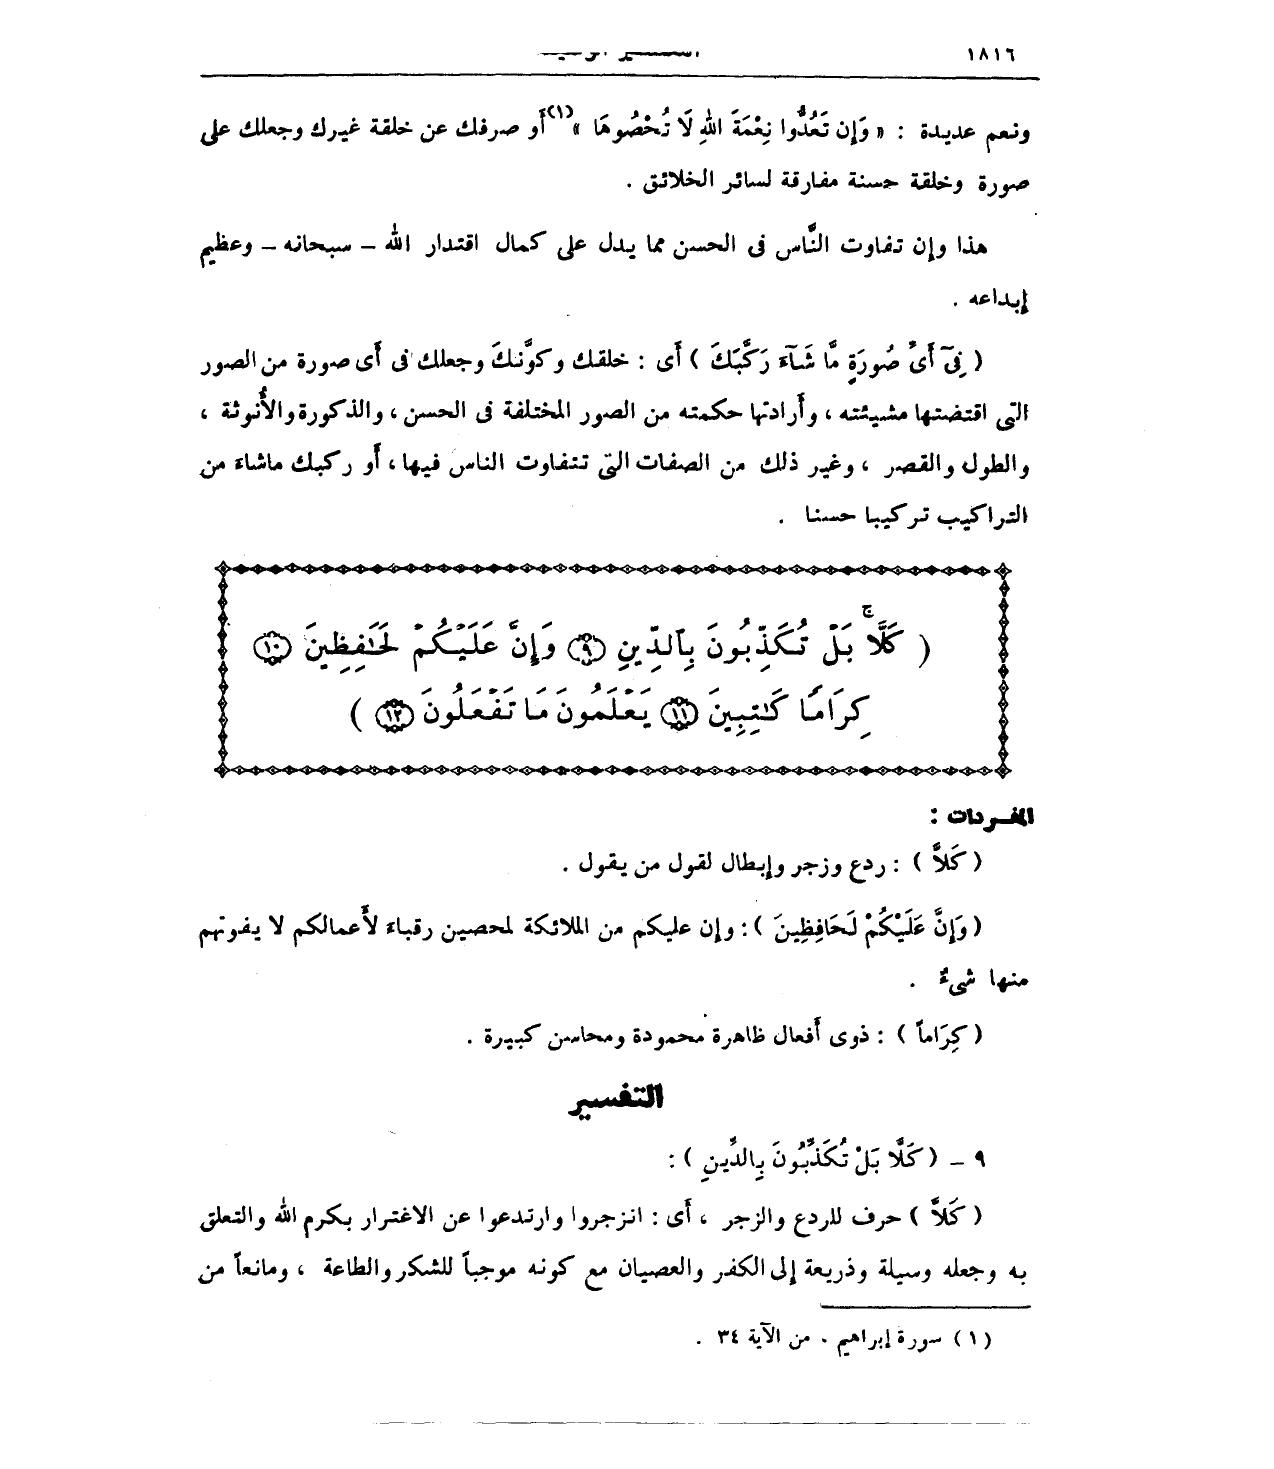 ١٨١٦
ونعم عديدة : « وَإِن تَعُدُّوا نِعْمَةَ اللهِ لَا تُحْصُوهَا »(١) أو صرفك عن خلقة غيرك وجعلك على
صورة وخلقة حسنة مفارقة لسائر الخلائق .
هذا وإن تفاوت النَّاس فى الحسن مما يدل على كمال اقتدار الله – سبحانه – وعظيم
إبداعه .
( فِىٓ أَىِّ صُورَةٍ مَّا شَآءَ رَكَّبَكَ ) أَى : خلقك وكوَّنكَ وجعلك فى أَى صورة من الصور
التى اقتضتها مشيئته ، وأَرادتها حكمته من الصور المختلفة فى الحسن ، والذكورة والأُنوثة ،
والطول والقصر ، وغير ذلك من الصفات التى تتفاوت الناس فيها ، أَو ركبك ماشاء من
التراكيب تركيبا حسنا .
( كَلَّاۚ بَلْ تُكَذِّبُونَ بِٱلدِّينِ ٩ وَإِنَّ عَلَيْكُمْ لَحَٰفِظِينَ ١٠
كِرَامًا كَٰتِبِينَ ١١ يَعْلَمُونَ مَا تَفْعَلُونَ ١٢ )
المفردات :
( كَلاَّ ) : ردع وزجر وإبطال لقول من يقول .
( وَإِنَّ عَلَيْكُمْ لَحَافِظِينَ ) : وإن عليكم من الملائكة لمحصين رقباء لأَعمالكم لا يفوتهم
منها شىءٌ .
( كِرَاماً ) : ذوى أَفعال ظاهرة محمودة ومحاسن كبيرة .
التفسير
٩ – ( كَلَّا بَلْ تُكَذِّبُونَ بِالدِّينِ ) :
( كَلاَّ ) حرف للردع والزجر ، أَى : انزجروا وارتدعوا عن الاغترار بكرم الله والتعلق
به وجعله وسيلة وذريعة إلى الكفر والعصيان مع كونه موجباً للشكر والطاعة ، ومانعاً من
(١) سورة إبراهيم . من الآية ٣٤ .